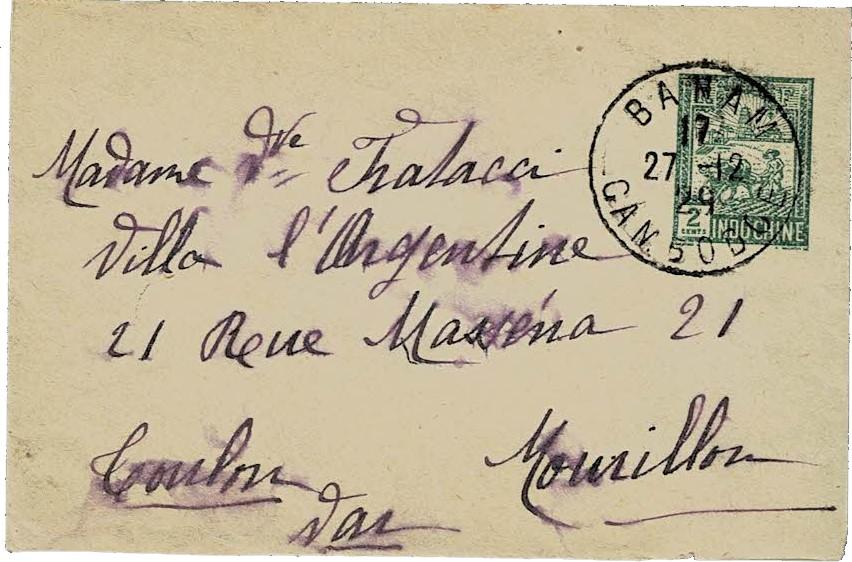 BANAM
17
27 -12
29
CAMBODGE
RF
2
CENTS
INDOCHINE
Madame Vve Fratacci
Villa l'Argentine
21 Rue Masséna 21
Toulon Mourillon
Var